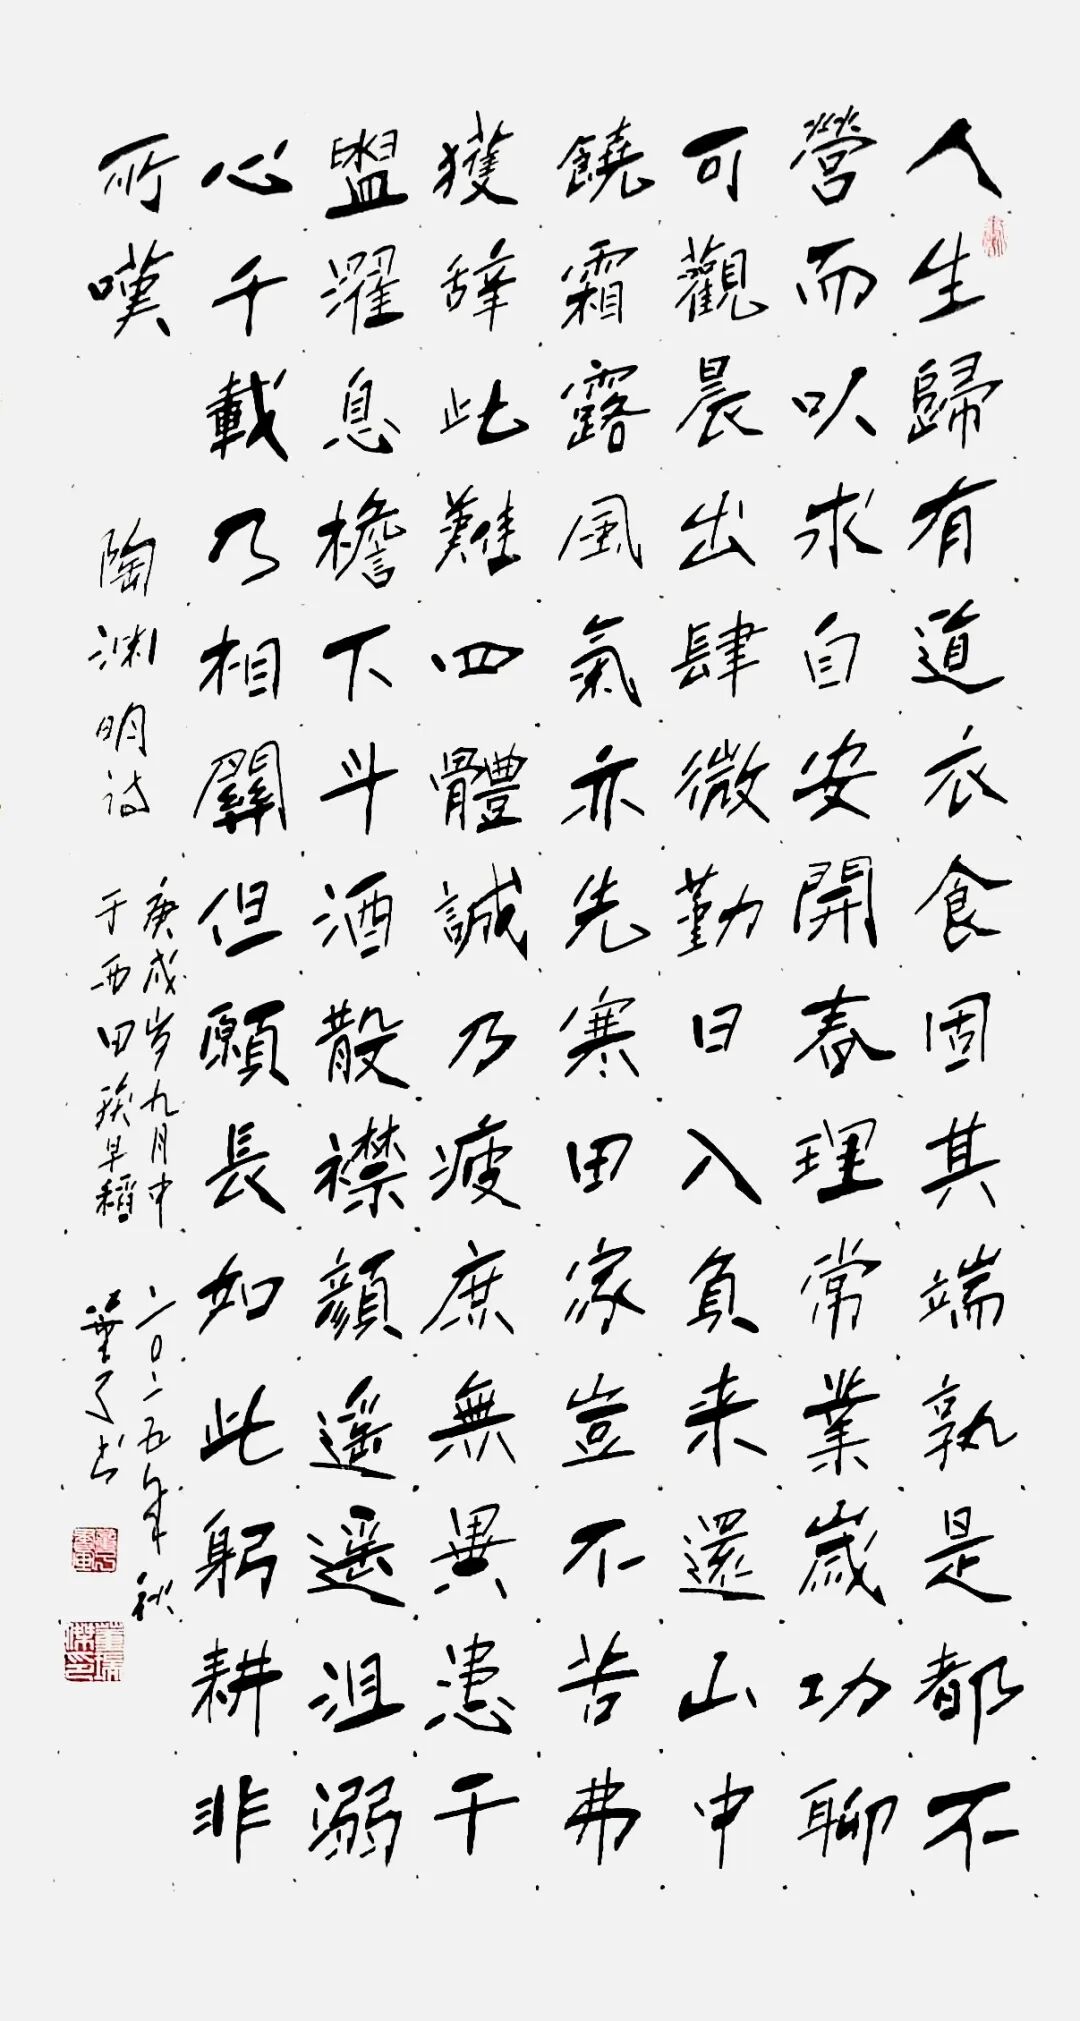 人生歸有道衣食固其端孰是都不
營而以求自安開春理常業歲功聊
可觀晨出肆微勤日入負来還山中
饒霜露風氣亦先寒田家豈不苦弗
獲辞此難四體誠乃疲庶無異患干
盥濯息檐下斗酒散襟顏遥遥沮溺
心千載乃相關但願長如此躬耕非
所嘆
陶渊明诗
庚戌岁九月中
于西田穫早稻
二〇二五年秋